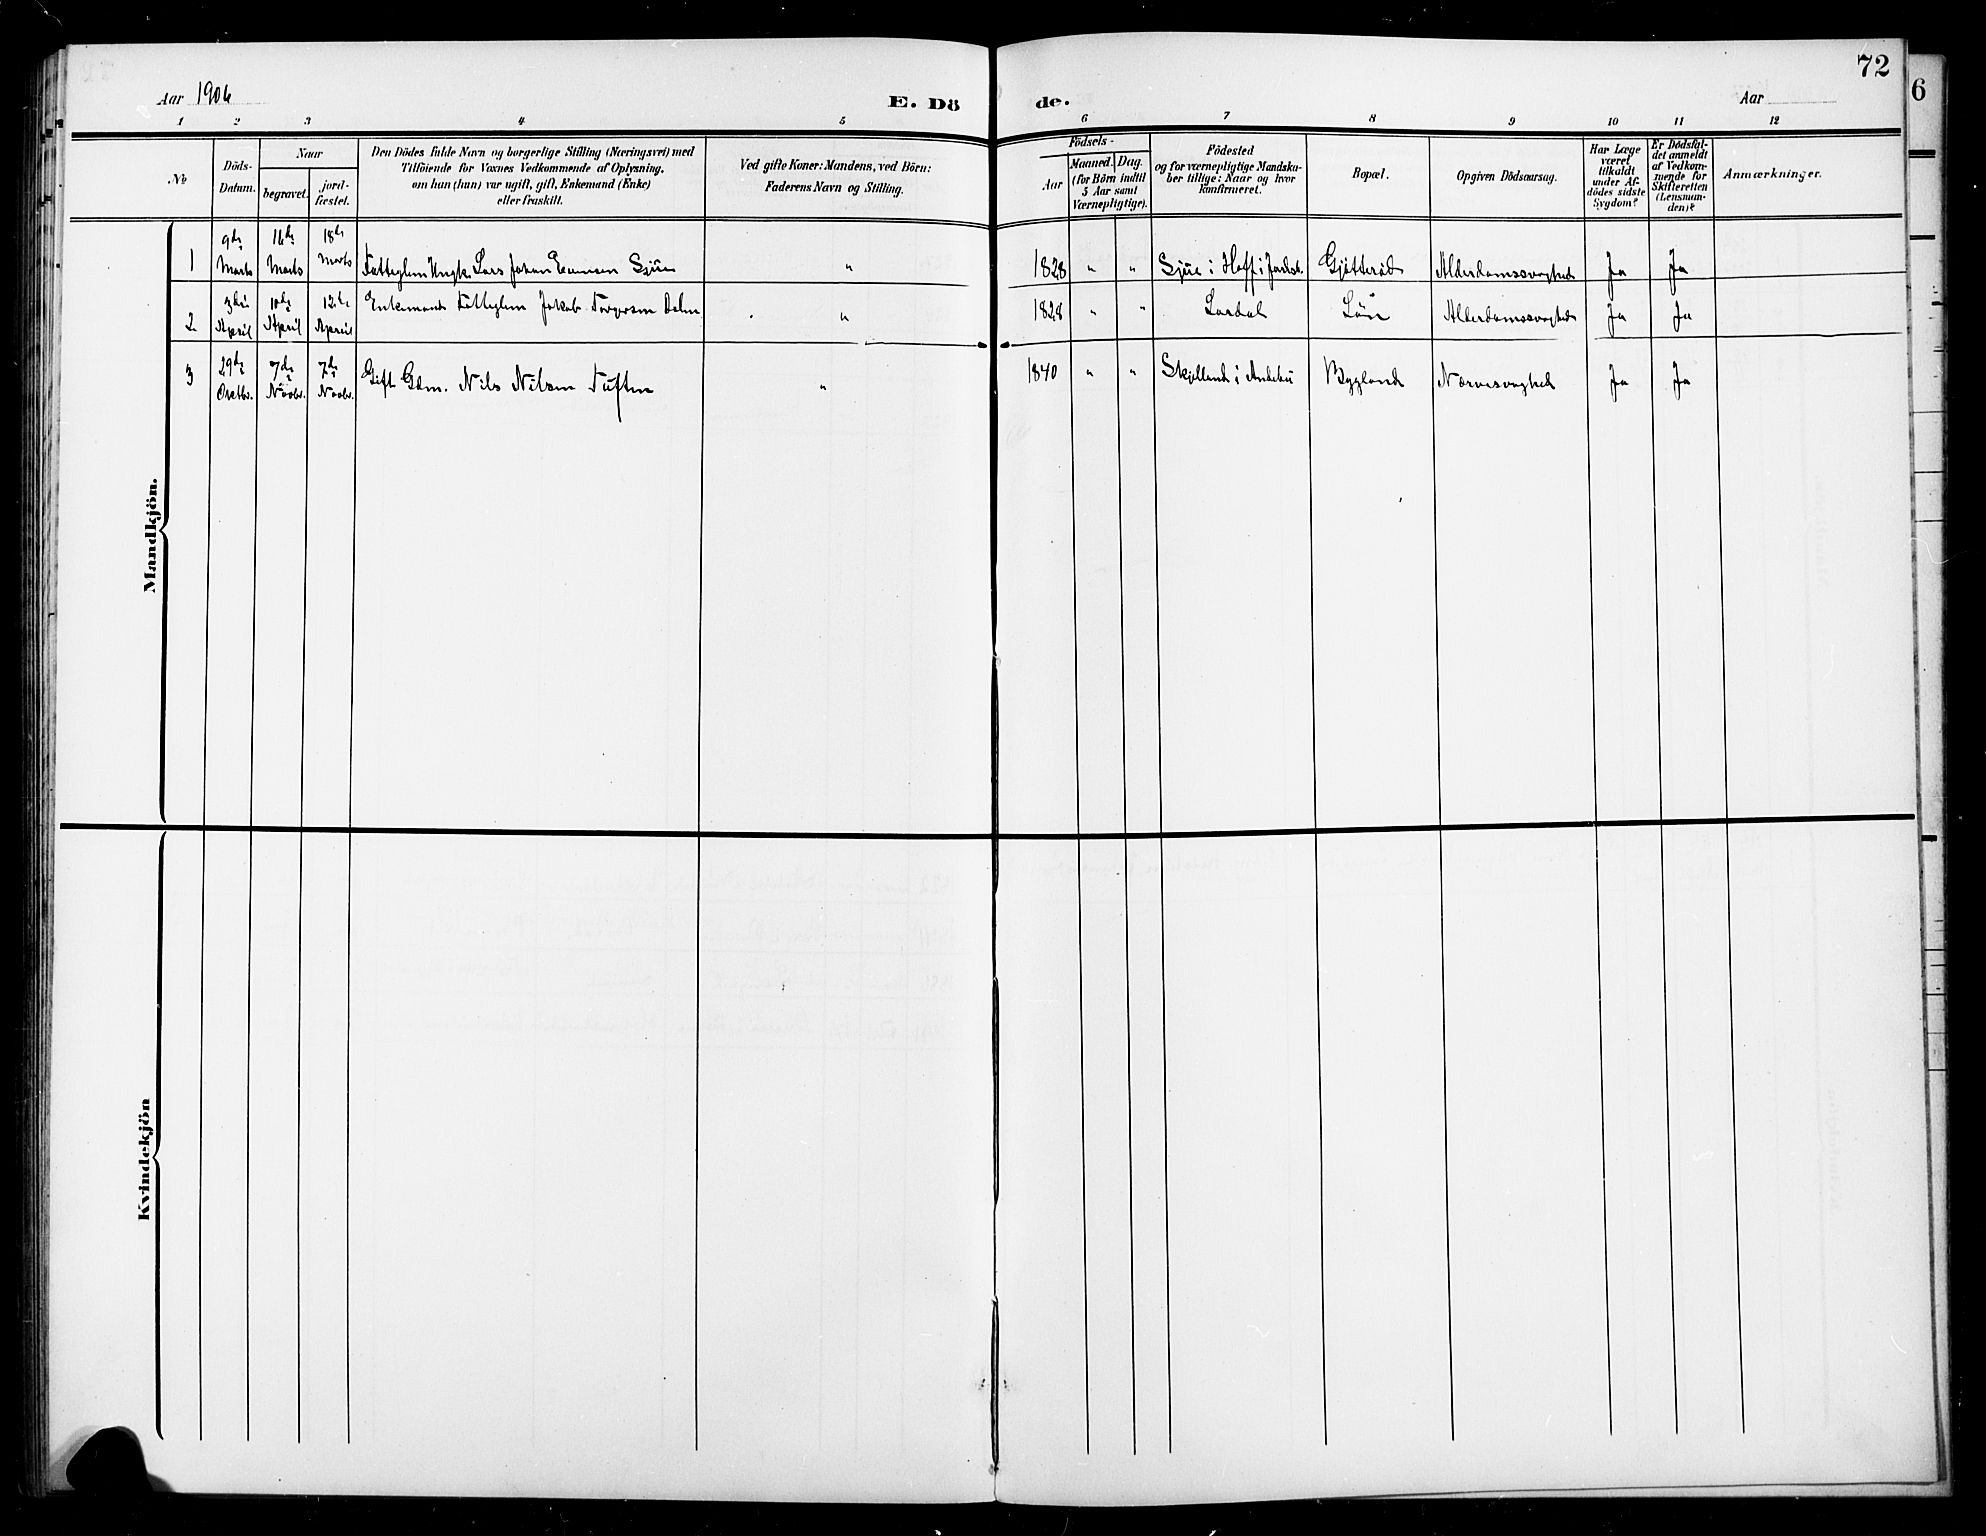 72
6
Aar 1906
E. Dö
de.
Aar
1 2 3 4 5 6 7 8 9 10 11 12
№
Döds-
Datum.
Naar
begravet.
jord-
fæstet.
Den Dödes fulde Navn og borgerlige Stilling (Næringsvei) med
Tilföiende for Voxnes Vedkommende af Oplysning,
om han (hun) var ugift, gift, Enkemand (Enke)
eller fraskilt.
Ved gifte Koner: Mandens, ved Börn:
Faderens Navn og Stilling.
Födsels-
Aar
Maaned. Dag.
(for Börn indtil
5 Aar samt
Værnepligtige).
Födested
og for værnepligtige Mandska-
ber tillige: Naar og hvor
konfirmeret.
Bopæl.
Opgiven Dödsaarsag.
Har Læge
været
tilkaldt
under Af-
dödes sidste
Sygdom?
Er Dödsfal-
det anmeldt
af Vedkom-
mende for
Skifteretten
(Lensman-
den)?
Anmærkninger.
Mandkjön.
1
9de Marts
16de Marts
18de Marts
Fattiglem Ungk. Lars Johan
"
1828 " "
i Hoff i Jarlsb.
Gjötteröd
Alderdomssvaghed
Ja
Ja
2
3die April
10de April
12te April
Enkemand Fattiglem Jakob
"
1828 " "
Lardal
Alderdomssvaghed
Ja
Ja
3
29de Octbr.
7de Novbr.
7de Novbr.
Gift Gdm. Nils Nilsen Tuften
"
1840 " "
Skjelland i Andebu
Bygland
Nervesvaghed
Ja
Ja
Kvindekjön